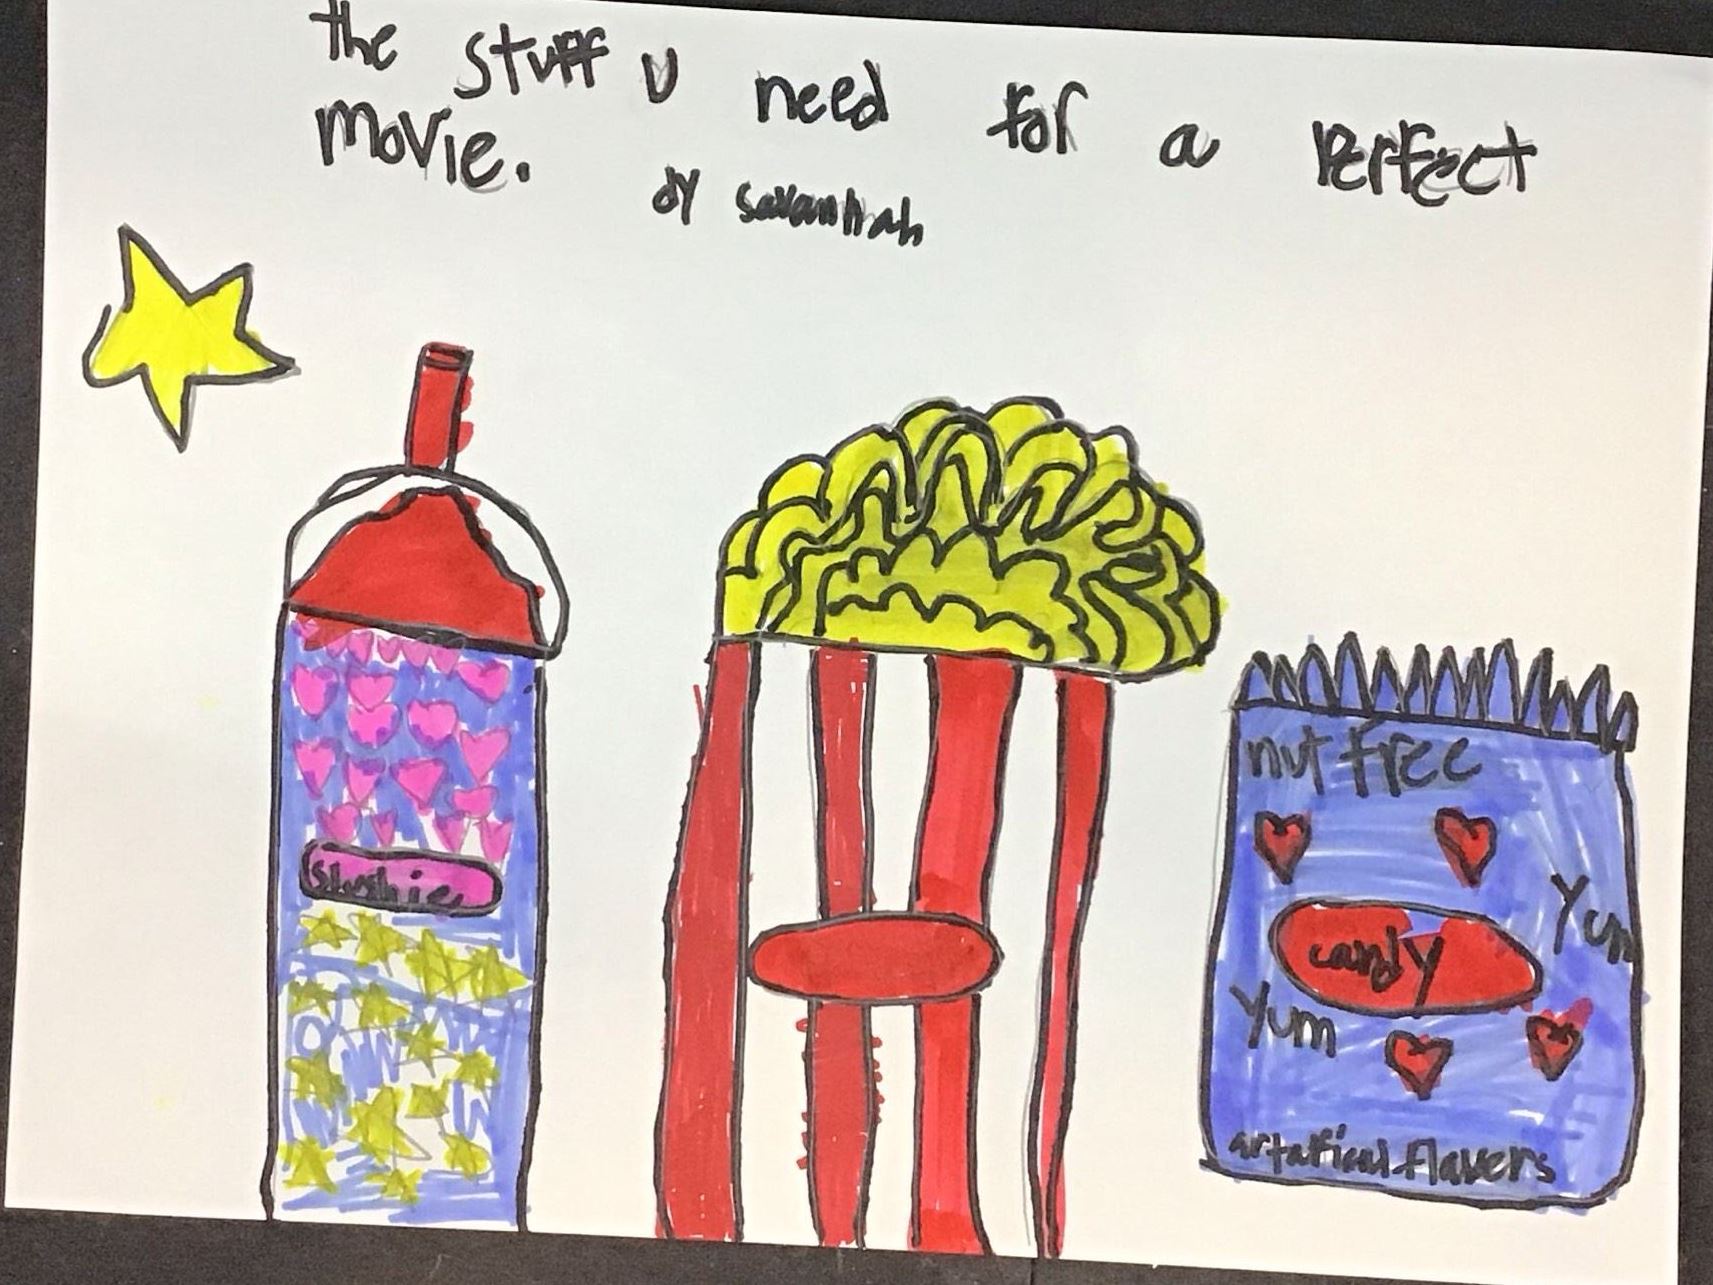 the stuff u need for a Perfect
movie.
by savannah
nut free
Yum
candy
Yum
slushie
artafical flavers